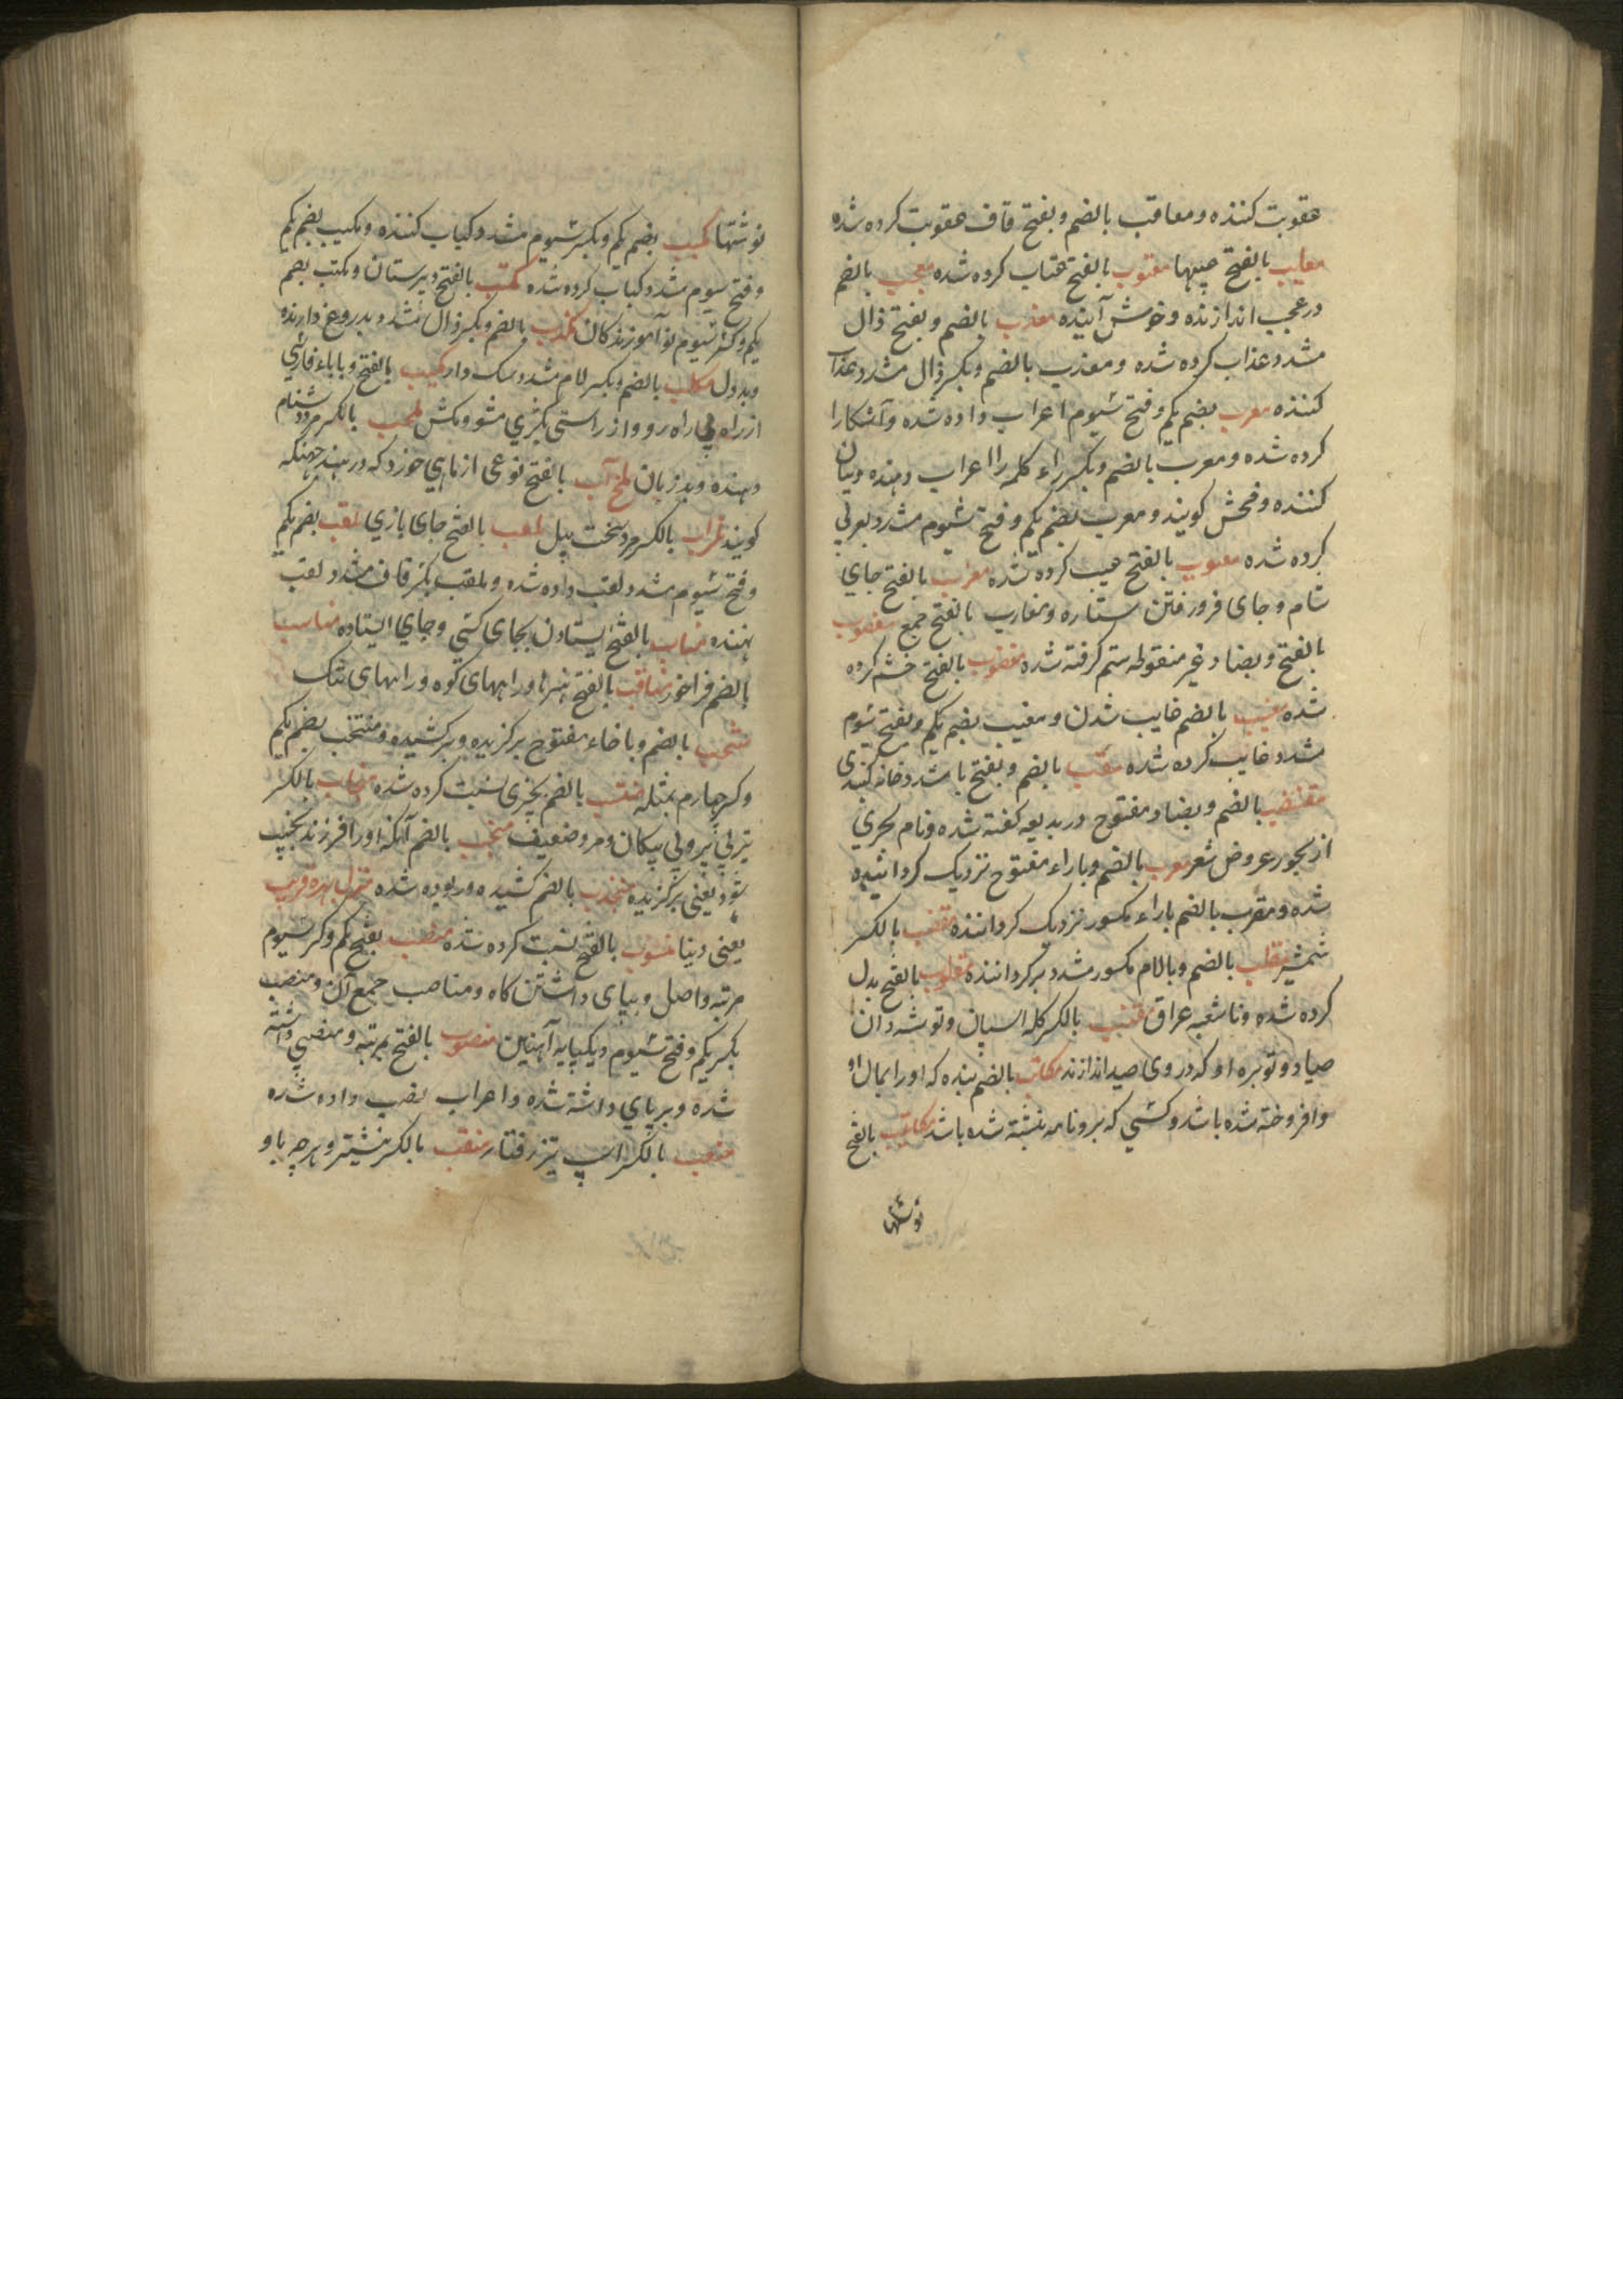 عقوبت کننده و معاقب بالضم و بفتح قاف عقوبت کرده شده
معایب بالفتح عیبها معتوب بالفتح عتاب کرده شده معجب بالضم
در عجب اندازنده و خوش آینده معذب بالضم و بفتح ذال
مشدد عذاب کرده شده و معذب بالضم و بکسر ذال مشدد عذاب
کننده معرب بضم یکم و فتح سیوم اعراب داده شده و آشکارا
کرده شده و معرب بالضم و بکسر راء کلمه را اعراب دهنده و بیان
کننده و فحش کوینده و معرب بضم یکم و فتح سیوم مشدد بعربی
کرده شده معیوب بالفتح عیب کرده شده مغرب بالفتح جای
شام و جای فرو رفتن ستاره و مغارب بالفتح جمع مغصوب
بالفتح و بصاد غیر منقوطه ستم کرفته شده مغضوب بالفتح خشم کرده
شده مغیب بالضم غایب شدن و مغیب بضم یکم و بفتح سیوم
مشدد غایب کرده شده مقبب بالضم و بفتح با مشدد خانه کنبدی
مقتضب بالضم و بضاد مفتوح در بدیهه کفته شده و نام بحری
از بحور عروض شعر مقرب بالضم و با راء مفتوح نزدیک کردانیده
شده و مقرب بالضم با راء مکسور نزدیک کرداننده مقضب بالکسر
شمشیر مقلب بالضم و با لام مکسور مشدد برکرداننده مقلوب بالفتح بدل
کرده شده و نا شعبه عراق مقنب بالکسر کله اسپان و توشه دان
صیاد و توبره او که در وی صید اندازند مکاتب بالضم بنده که او را بمال او
وافروخته شده باشد و کسی که برو نامه نبشته شده باشد مکاتیب بالفتح
نوشتها
نوشتها مکبب بضم یکم و بکسر سیوم مشدد کباب کننده و مکبب بضم یکم
و فتح سیوم مشدد کباب کرده شده مکتب بالفتح دبیرستان و مکتب بضم
یکم و کسر سیوم نوآموزندکان مکذب بالضم و بکسر ذال مشدد بدروغ دارنده
و بددل مکلب بالضم و بکسر لام مشدد سک دار مکیب بالفتح و با باء فارسی
از راه بی راه رو و از راستی بکژی مشو و مکش ملحب بالکسر مرد دشنام
دهنده و بد زبان ملخ آب بالفتح نوعی از ماهی خورد که در هند جهنکه
کویند بالکسر مرد سخت بیل ملعب بالفتح جای بازی ملقب بضم یکم
و فتح سیوم مشدد لقب داده شده و ملقب بکسر قاف مشدد لقب
نهنده مناب بالفتح ایستادن بجای کسی و جای ایستاده مناسب
بالضم فراخور مناقب بالفتح هنرها و راههای کوه و راههای تنک
منتخب بالضم و با خاء مفتوح برکزیده و برکشیده و منتخب بضم یکم
و کسر چهارم بمثله منتسب بالضم بچیزی نسبت کرده شده منجاب بالکسر
تیر بی پر و بی پیکان و مرد ضعیف منجب بالضم آنکه او را فرزند نجیب
شود یعنی برکزیده منجذب بالضم کشیده و ربوده شده منزل بهره قریب
یعنی دنیا منسوب بالفتح نسبت کرده شده منصب بفتح یکم و کسر سیوم
مرتبه و اصل و بپای داشتن کاه و مناصب جمع آن و منصب
بکسر یکم و فتح سیوم دیکپایه آهنین منصوب بالفتح بمرتبه و منصبی داشته
شده و برپای داشته شده و اعراب نصب داده شده
منعب بالکسر اسپ تیز رفتار منقب بالکسر نیشتر و هرچه باو